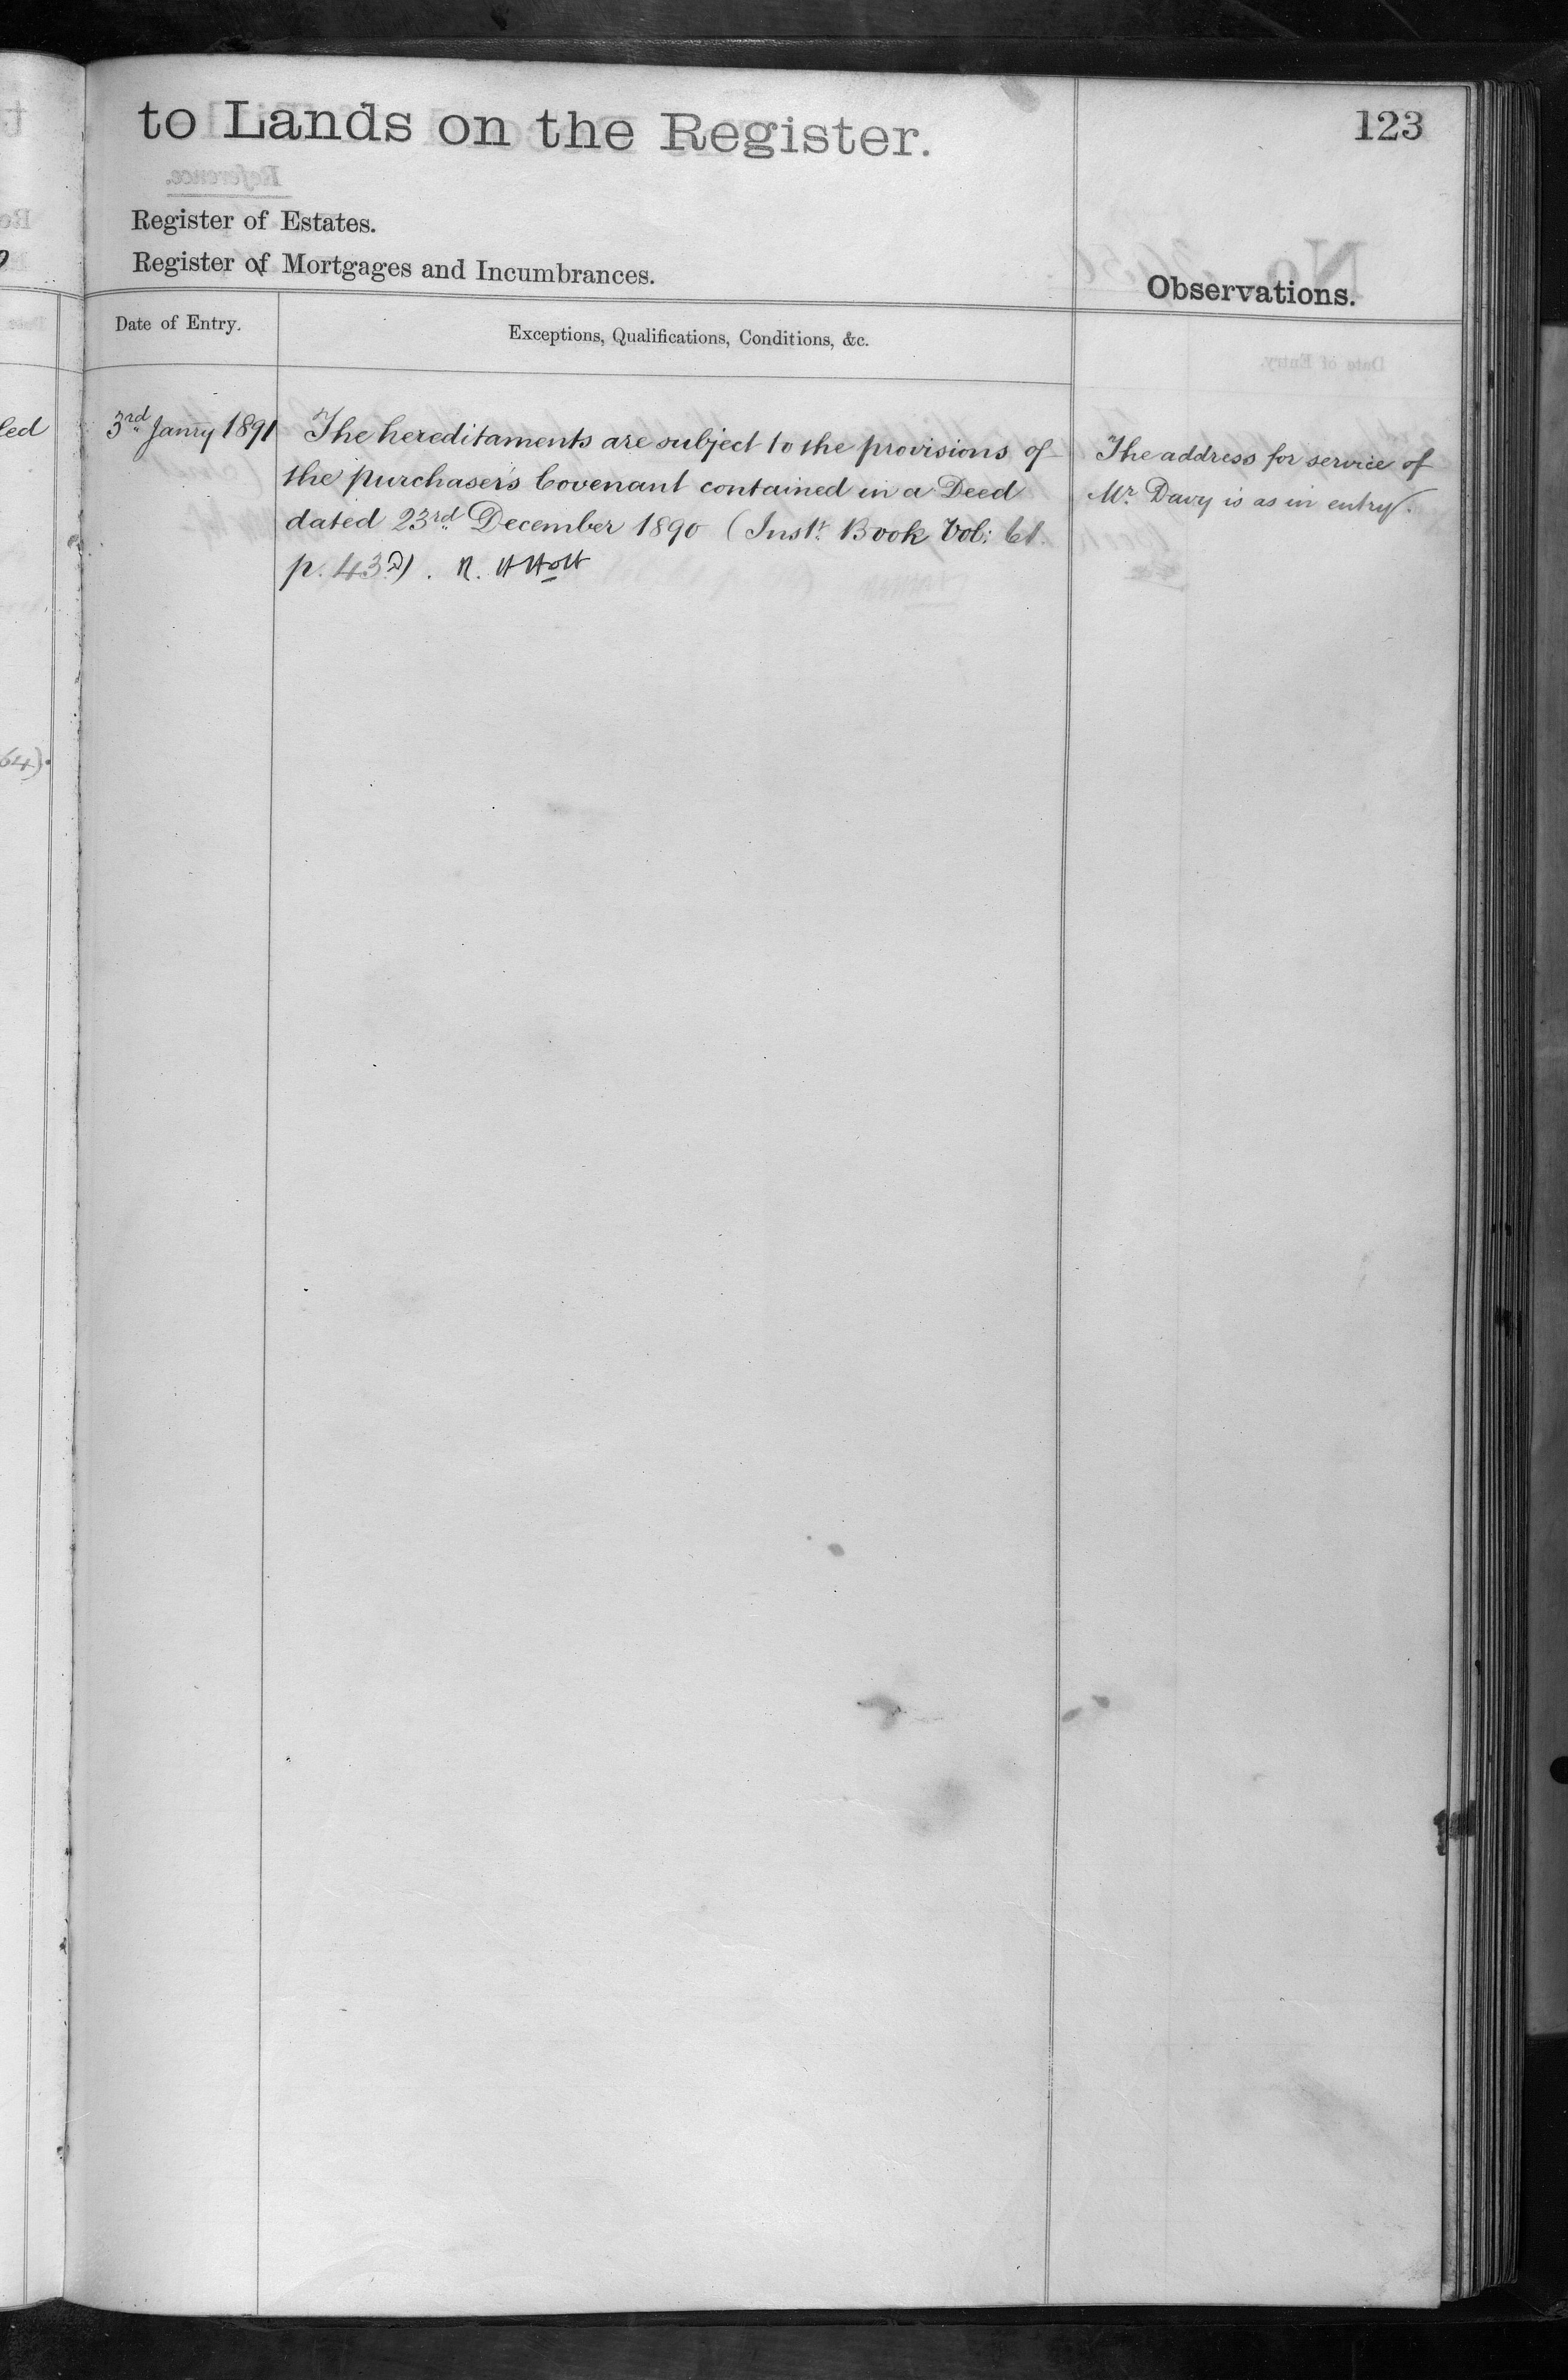 to Lands on the Register.
123
Register of Estates.
Register of Mortgages and Incumbrances.
Observations.
Date of Entry.
Exceptions, Qualifications, Conditions, &c.
3rd Janry 1891
The hereditaments are subject to the provisions of
the purchaser's Covenant contained in a Deed
dated 23rd December 1890 (Inst. Book Vol: 61.
p. 432). R. H Holt
The address for service of
Mr. Davy is as in entry.
led
64).